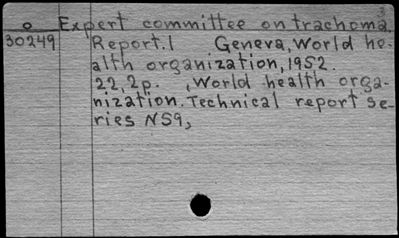 o Expert committee on trachoma.
30249 Report.1 Geneva, World he-
alth organization, 1952.
22,2p. , World health orga-
nization. Technical report se-
ries N59,